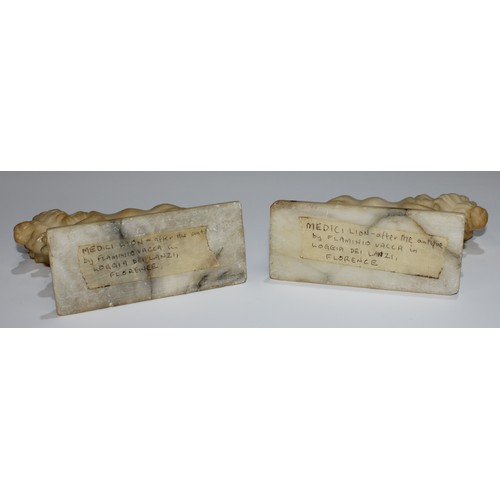 MEDICI LION - after the antique
by FLAMINIO VACCA in
LOGGIA DEI LANZI,
FLORENCE.
MEDICI LION - after the antique
by FLAMINIO VACCA in
LOGGIA DEI LANZI,
FLORENCE